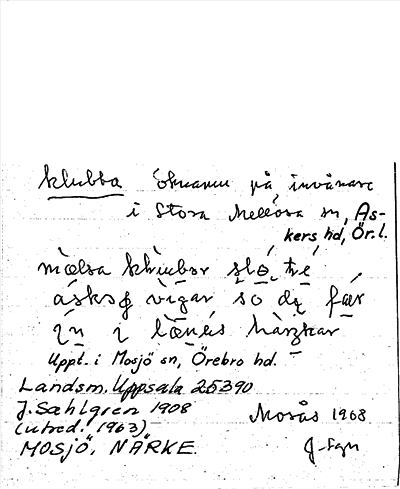 klubba öknamn på invånare
i Stora Mellösa sn, As-
kers hd, Ör.l.
mœlsa klubor slo, tré
åskog vigar so dę fǽr
įn i lœnœs harzkar
Uppt. i Mosjö sn, Örebro hd.
Landsm. Uppsala 25390
J. Sahlgren 1908
(utred. 1963)
MOSJÖ, NÄRKE.
Morås 1968
J-Fgn